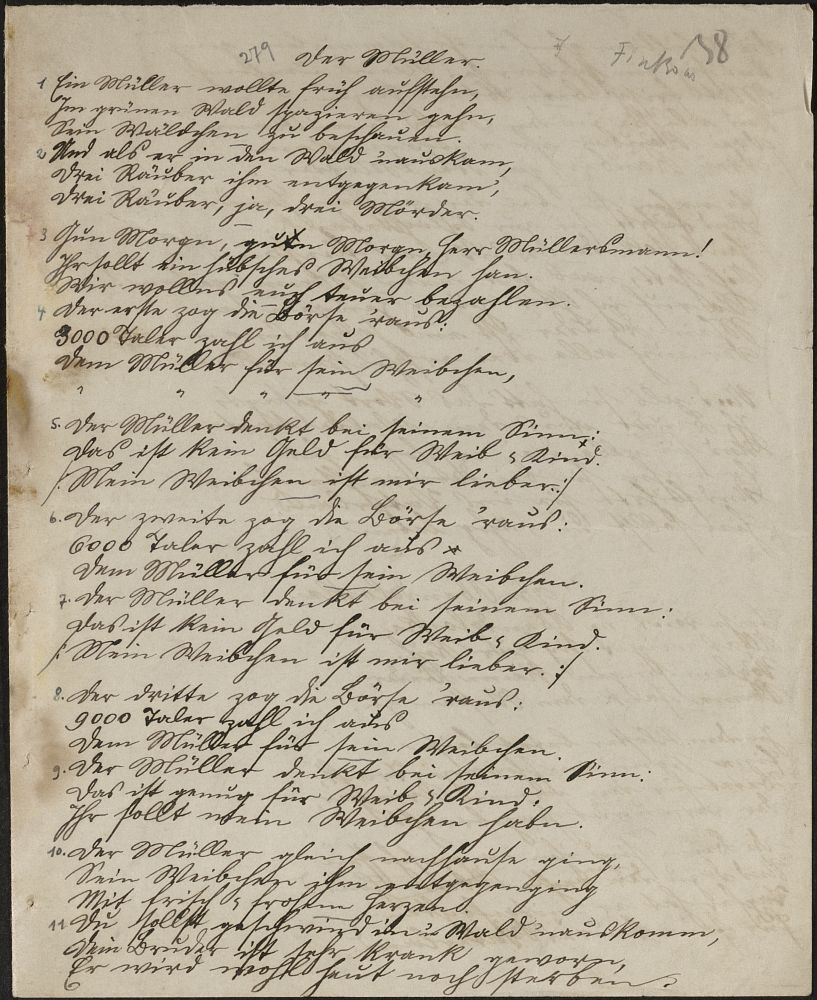 279 Der Müller. 38
1 Ein Müller wollte früh aufstehn,
Im grünen Wald spazieren gehn,
Sein Wäldchen zu beschauen.
2 Und als er in den Wald nauskam,
Drei Räuber ihm entgegenkam',
Drei Räuber, ja, drei Mörder.
3 Gun Morgn, gutn Morgn, Herr Müllersmann!
Ihr sollt ein hübsches Weibchen han.
Wir wollens euch teuer bezahlen.
4 Der erste zog die Börse 'raus:
3000 Taler zahl ich aus
Dem Müller für sein Weibchen,
" " " " "
5. Der Müller denkt bei seinem Sinn:
Das ist kein Geld für Weib & Kind.
/: Mein Weibchen ist mir lieber :/
6. Der zweite zog die Börse 'raus:
6000 Taler zahl ich aus
Dem Müller für sein Weibchen.
7. Der Müller denkt bei seinem Sinn:
Das ist kein Geld für Weib & Kind.
/: Mein Weibchen ist mir lieber. :/
8. Der dritte zog die Börse 'raus:
9000 Taler zahl ich aus
Dem Müller für sein Weibchen.
9. Der Müller denkt bei seinem Sinn:
Das ist genug für Weib & Kind.
Ihr sollt mein Weibchen habn.
10. Der Müller gleich nachhause ging,
Sein Weibchen ihm entgegenging
Mit frisch & frohem Herzen.
11 Du sollst geschwind in'n Wald nauskomm,
Dein Bruder ist sehr krank geworn,
Er wird wohl heut noch sterben.